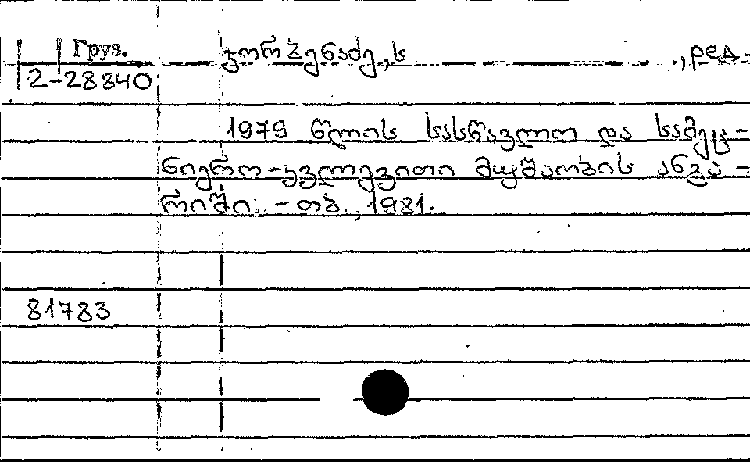 Груз.
ჯორბენაძე, ს. , ред.
2-28840
1979 წლის სასწავლო და სამეც-
ნიერო-კვლევითი მუშაობის ანგა-
რიში. - თბ., 1981.
81783